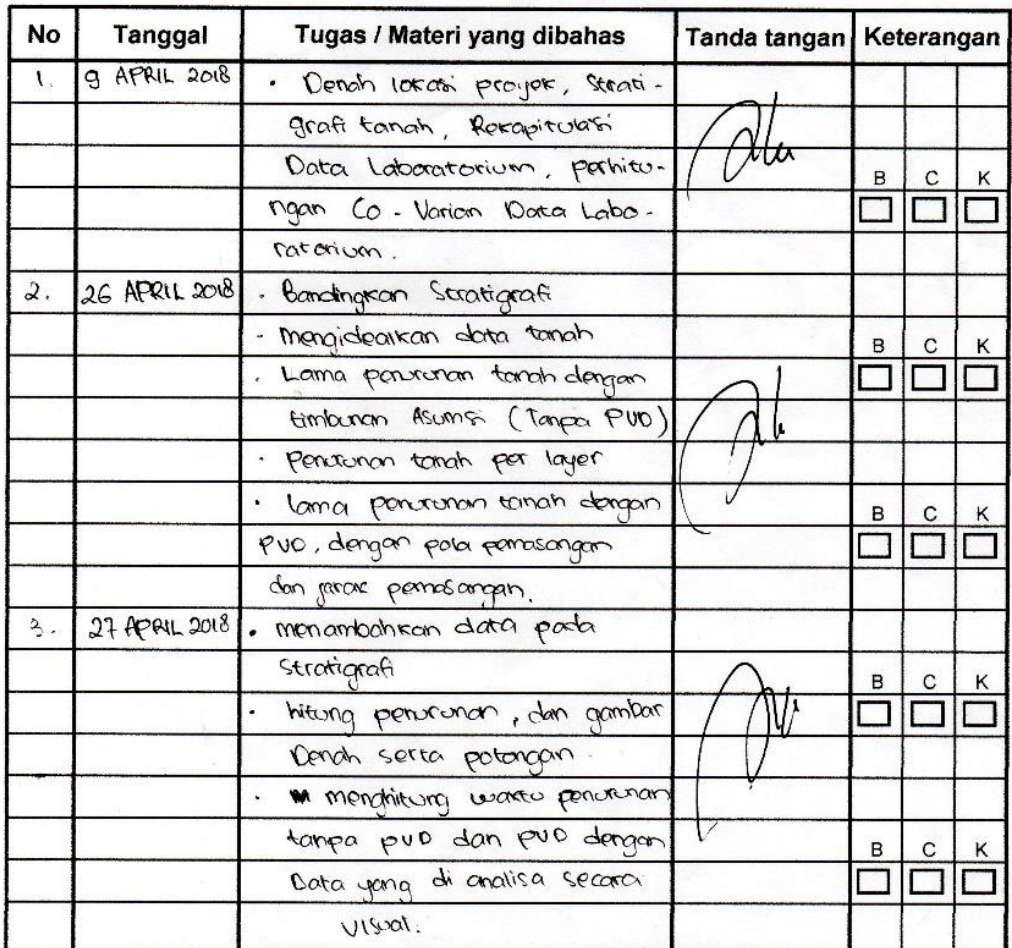 No Tanggal Tugas / Materi yang dibahas Tanda tangan Keterangan
1. 9 APRIL 2018 • Denah lokasi proyek, Strati-
grafi tanah, Rekapitulasi
Data Laboratorium, perhitu-
B C K
ngan Co-Varian Data Labo-
ratorium.
2. 26 APRIL 2018 • Bandingkan Stratigrafi
- Mengidealkan data tanah
B C K
• Lama penurunan tanah dengan
timbunan Asumsi (Tanpa PVD)
• Penurunan tanah per layer
• Lama penurunan tanah dengan
B C K
PVD, dengan pola pemasangan
dan jarak pemasangan.
3. 27 APRIL 2018 • menambahkan data pada
Stratigrafi
B C K
• hitung penurunan, dan gambar
Denah serta potongan
• menghitung waktu penurunan
tanpa PVD dan PVD dengan
B C K
Data yang di analisa secara
visual.